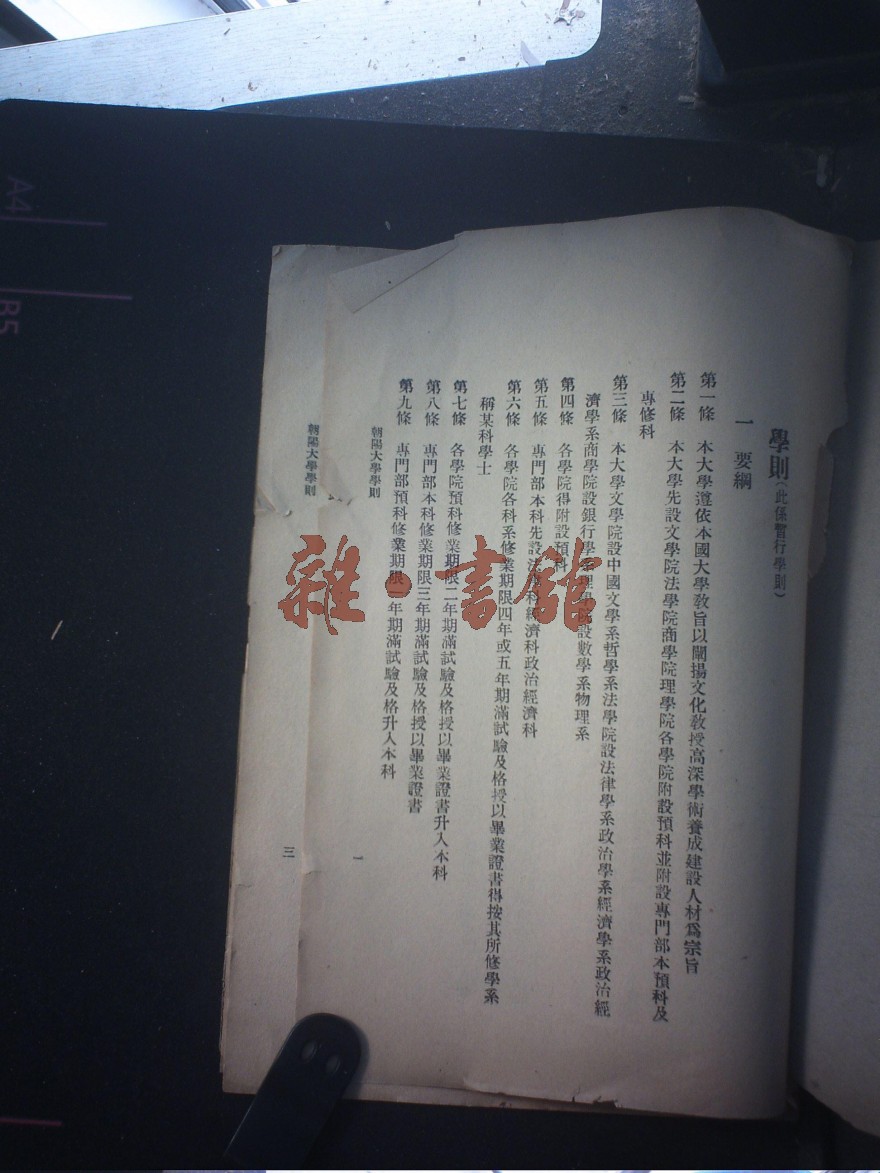 學則(此係暫行學則)
一 要綱
第一條 本大學遵依本國大學教旨以闡揚文化教授高深學術養成建設人材爲宗旨
第二條 本大學先設文學院法學院商學院理學院各學院附設預科並附設專門部本預科及
專修科
第三條 本大學文學院設中國文學系哲學系法學院設法律學系政治學系經濟學系政治經
濟學系商學院設銀行學系理學院設數學系物理系
第四條 各學院得附設預科
第五條 專門部本科先設法律科經濟科政治經濟科
第六條 各學院各科系修業期限四年或五年期滿試驗及格授以畢業證書得按其所修學系
稱某科學士
第七條 各學院預科修業期限二年期滿試驗及格授以畢業證書升入本科
第八條 專門部本科修業期限三年期滿試驗及格授以畢業證書
第九條 專門部預科修業期限一年期滿試驗及格升入本科
朝陽大學學則
一
朝陽大學學則
三
雜·書館
A4
B5